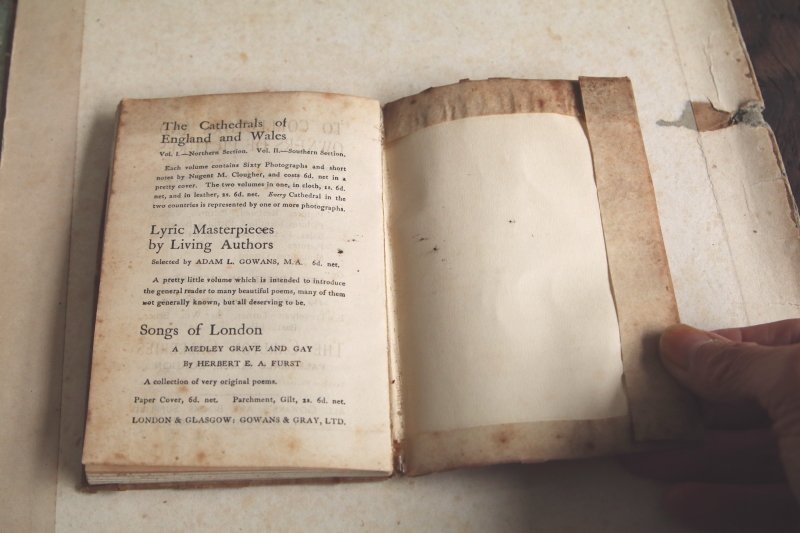 The Cathedrals of
England and Wales
Vol. I.—Northern Section. Vol. II.—Southern Section.
Each volume contains Sixty Photographs and short
notes by Nugent M. Clougher, and costs 6d. net in a
pretty cover. The two volumes in one, in cloth, 1s. 6d.
net, and in leather, 2s. 6d. net. Every Cathedral in the
two countries is represented by one or more photographs.
Lyric Masterpieces
by Living Authors
Selected by ADAM L. GOWANS, M.A. 6d. net.
A pretty little volume which is intended to introduce
the general reader to many beautiful poems, many of them
not generally known, but all deserving to be.
Songs of London
A MEDLEY GRAVE AND GAY
By HERBERT E. A. FURST
A collection of very original poems.
Paper Cover, 6d. net. Parchment, Gilt, 2s. 6d. net.
LONDON & GLASGOW: GOWANS & GRAY, LTD.